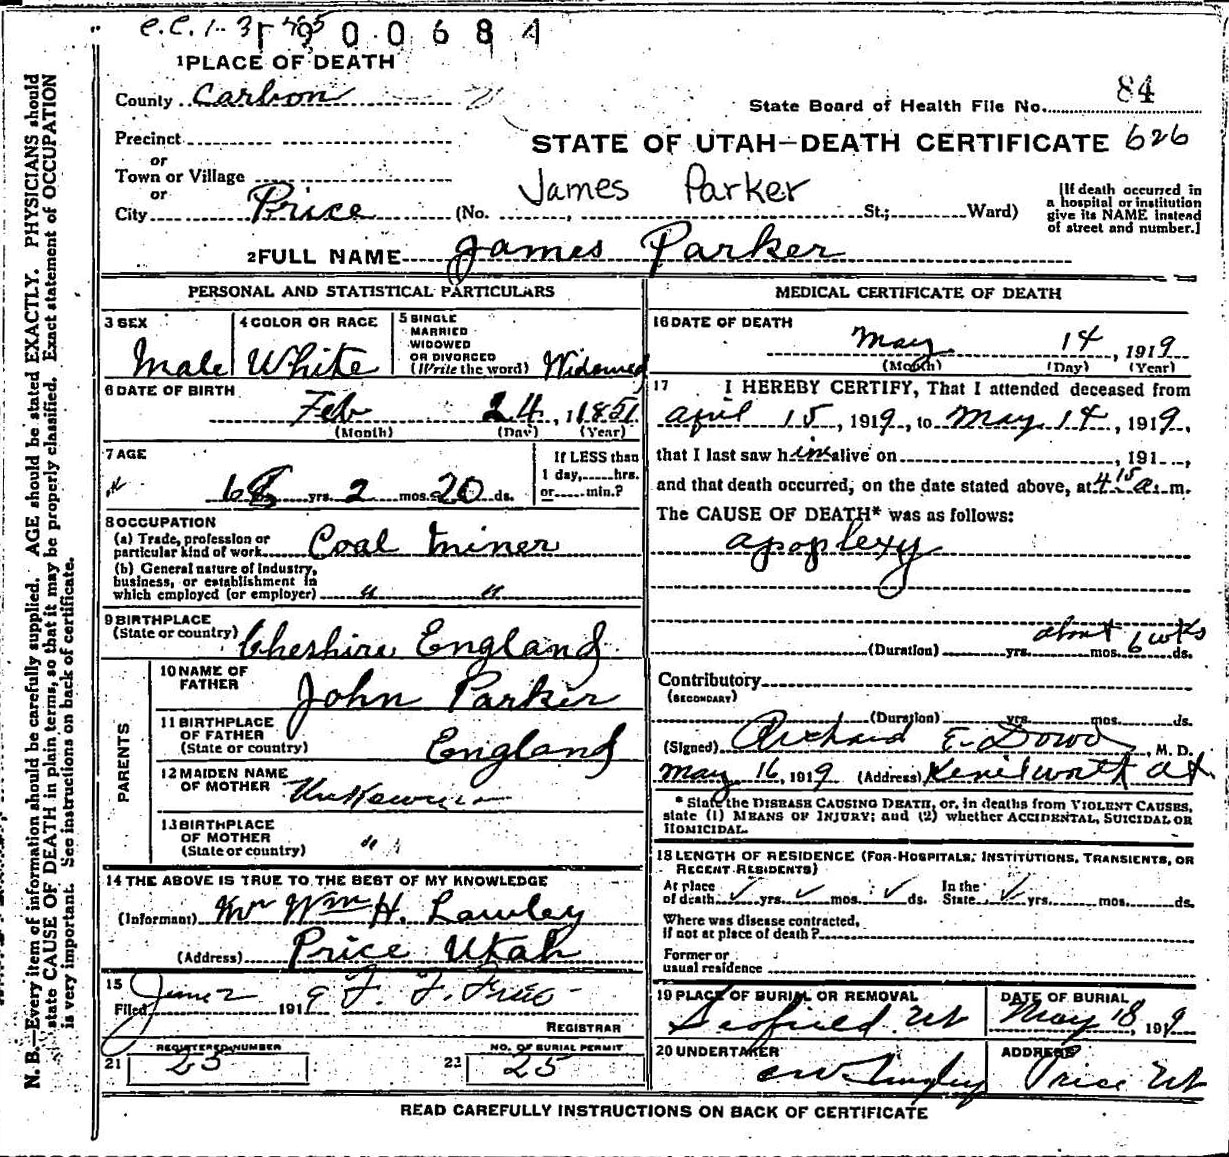 C.C. 1-31-
0 0 6 8 4
1 PLACE OF DEATH
County Carbon
State Board of Health File No. 84
Precinct
STATE OF UTAH—DEATH CERTIFICATE 626
or
Town or Village
or
James Parker
City Price (No. , St.; Ward)
[If death occurred in
a hospital or institution
give its NAME instead
of street and number.]
2 FULL NAME James Parker
PERSONAL AND STATISTICAL PARTICULARS
3 SEX
Male
4 COLOR OR RACE
White
5 SINGLE
MARRIED
WIDOWED
OR DIVORCED
(Write the word) Widowed
6 DATE OF BIRTH
Feb 24, 1851
(Month) (Day) (Year)
7 AGE
68 yrs. 2 mos. 20 ds.
If LESS than
1 day, hrs.
or min.?
8 OCCUPATION
(a) Trade, profession or
particular kind of work Coal Miner
(b) General nature of Industry,
business, or establishment in
which employed (or employer) " "
9 BIRTHPLACE
(State or country) Cheshire England
PARENTS
10 NAME OF
FATHER John Parker
11 BIRTHPLACE
OF FATHER
(State or country) England
12 MAIDEN NAME
OF MOTHER Unknown
13 BIRTHPLACE
OF MOTHER
(State or country) "
14 THE ABOVE IS TRUE TO THE BEST OF MY KNOWLEDGE
(Informant) Mr Wm H. Lawley
(Address) Price Utah
15
Filed June 2 1919
REGISTRAR
REGISTERED NUMBER
21 25
NO. OF BURIAL PERMIT
22 25
MEDICAL CERTIFICATE OF DEATH
16 DATE OF DEATH
May 14, 1919
(Month) (Day) (Year)
17 I HEREBY CERTIFY, That I attended deceased from
april 15, 1919, to May 14, 1919,
that I last saw him alive on , 191 ,
and that death occurred, on the date stated above, at 4 15 a. m.
The CAUSE OF DEATH* was as follows:
apoplexy
(Duration) yrs. mos. about 6 wks ds.
Contributory
(SECONDARY)
(Duration) yrs. mos. ds.
(Signed) Richard E. Dowd, M. D.
May 16, 1919 (Address) Kenilworth Ut
* State the DISEASE CAUSING DEATH, or, in deaths from VIOLENT CAUSES,
state (1) MEANS OF INJURY; and (2) whether ACCIDENTAL, SUICIDAL OR
HOMICIDAL.
18 LENGTH OF RESIDENCE (FOR HOSPITALS, INSTITUTIONS, TRANSIENTS, OR
RECENT RESIDENTS)
At place
of death yrs. mos. ds.
In the
State yrs. mos. ds.
Where was disease contracted,
if not at place of death?
Former or
usual residence
19 PLACE OF BURIAL OR REMOVAL
Scofield Ut
DATE OF BURIAL
May 18, 1919
20 UNDERTAKER
ADDRESS
Price Ut
READ CAREFULLY INSTRUCTIONS ON BACK OF CERTIFICATE
N. B.—Every item of information should be carefully supplied. AGE should be stated EXACTLY. PHYSICIANS should
state CAUSE OF DEATH in plain terms, so that it may be properly classified. Exact statement of OCCUPATION
is very important. See instructions on back of certificate.